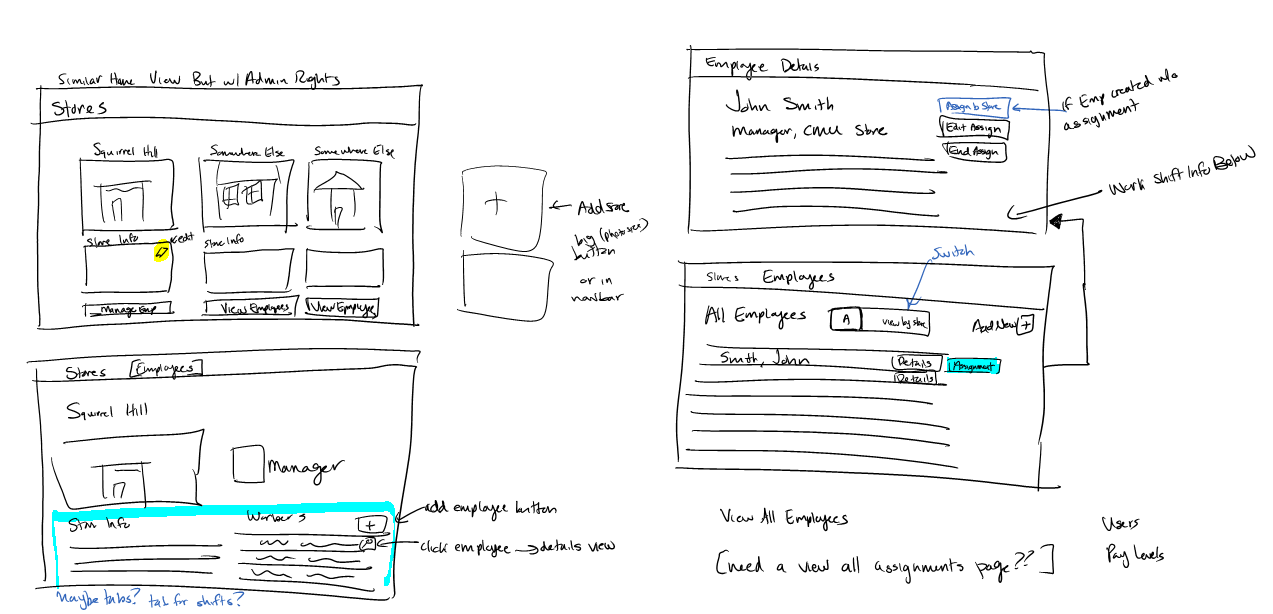 Similar Home View But w/ Admin Rights
Stores
Squirrel Hill
Somewhere Else
Somewhere Else
Store Info
edit
Store Info
Manage Emp
View Employees
View Employees
+
Add store
big (photo size)
button
or in
navbar
Stores
Employees
Squirrel Hill
Manager
Store Info
Workers
+
add employee button
click employee → details view
maybe tabs? tab for shifts?
Employee Details
John Smith
Manager, CMU Store
Assign to Store
Edit Assign
End Assign
if Emp created w/o
assignment
Work Shift Info Below
Switch
Stores
Employees
All Employees
A
view by store
Add New +
Smith, John
Details
Assignment
Details
View All Employees
[need a view all assignments page??]
Users
Pay Levels